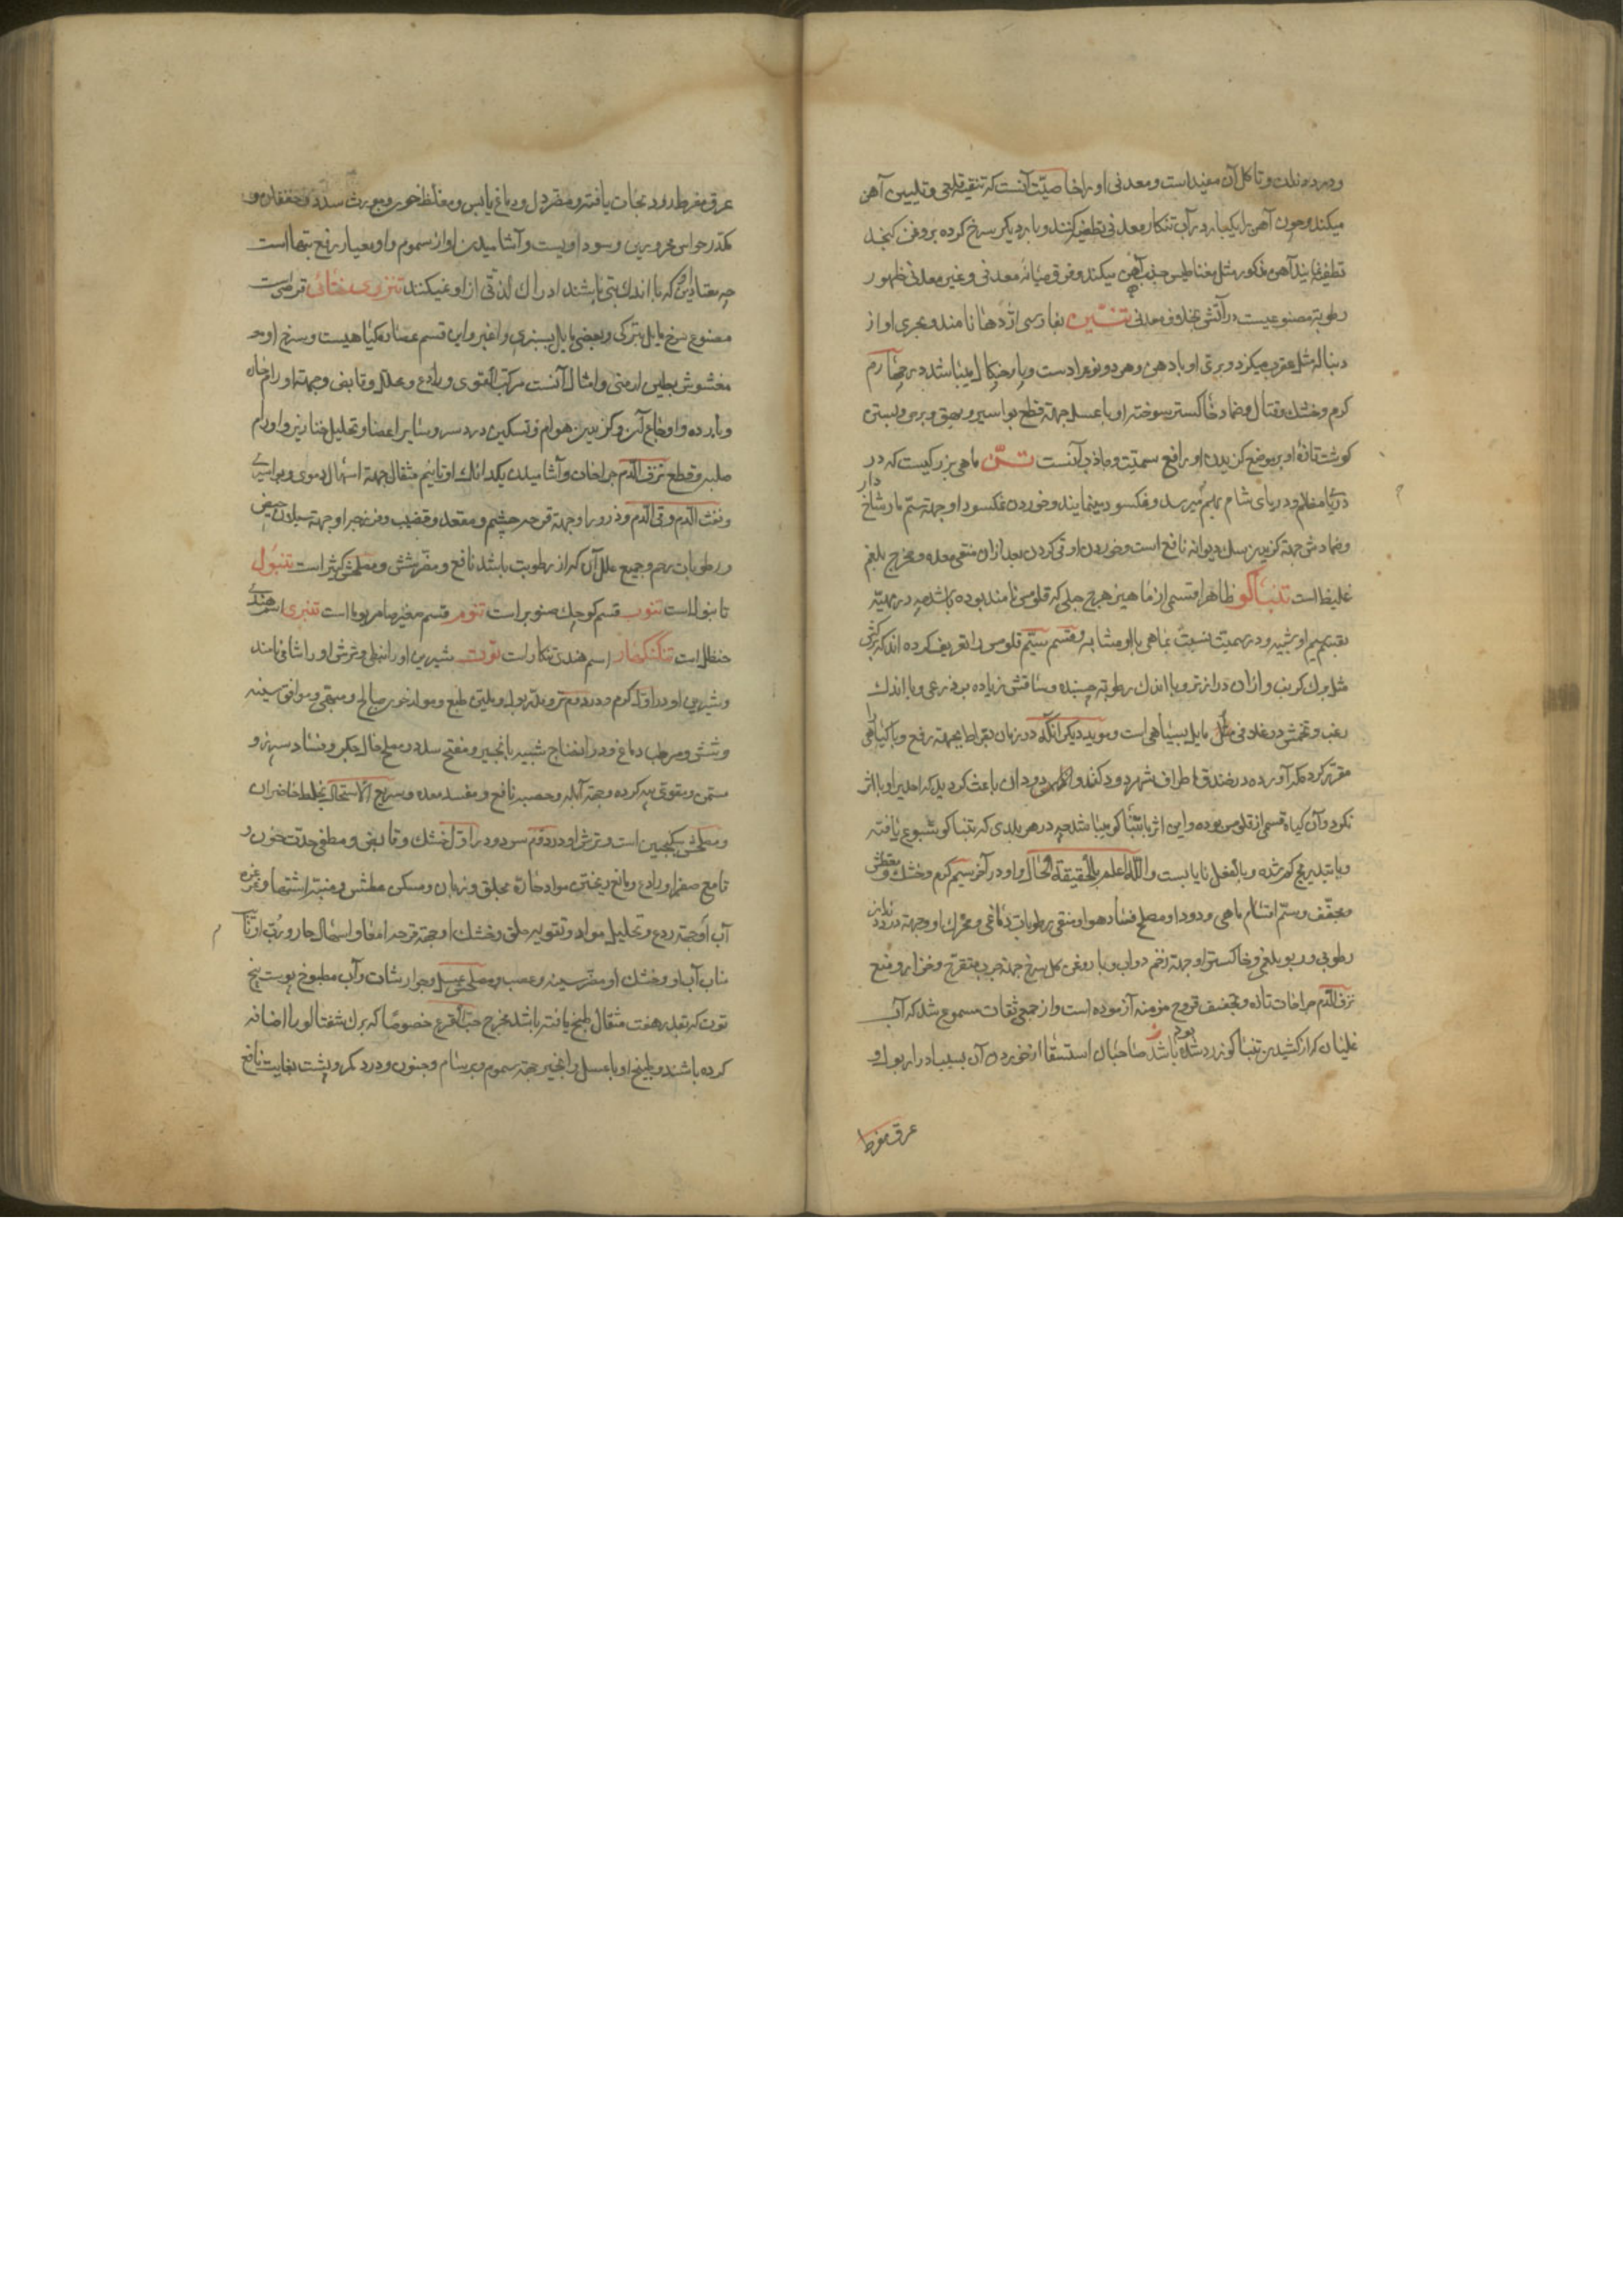 ودر دندان و تاکل آن مفید است و معدنی او را خاصیت آنست که تنقیه قلعی و تلیین آهن
میکند و چون آهن را یکبار در آب تنکار معدنی تطفیه کنند و بار دیگر سرخ کرده بروغن کنجد
تطفیه نمایند آهن مذکور مثل مغناطیس جذب آهن میکند و فرق میانه معدنی و غیر معدنی ظهور
رطوبة مصنوعیست در آتش بخلاف معدنی تنین بفارسی اژدها نامند و بحری او از
دنباله مثل عقرب میگزد و بری او با دهن و هر دو نوع مراد است و با رخنکال میباشد در چهارم
کرم و خشک و قتال و ضماد خاکستر سوخته او با عسل جهة قطع بواسیر و بهق و برص و بستن
کوشت تازه او بر موضع کزیدن او رافع سمیت و جاذب آنست تن ماهی بزرکیست که در
دریای مظلم و دریای شام بهم میرسد و نمکسود مینمایند و خوردن نمکسود او جهة سم مار شاخ دار
وضمادش جهة کزیدن سک دیوانه نافع است و خوردن او و قی کردن بعد از ان منقی معده و مخرج بلغم
غلیظ است تنباکو ظاهرا قسمی از ماهیزهرج جبلی که قلومس نامند بوده باشد چه در مهیة
بقسیم او شبیه و در سمیت نسبت بماهی با او مشابه و قسم سیم قلومس را تعریف کرده اند که برکش
مثل برک کرنب و از ان درازتر و با اندک رطوبة چسبنده و ساقش زیاده بر ذرعی و با اندک
زغب و تخمش در غلافی مایل بسیاهی است و موید دیکر انکه در زمان بقراط بجهة رفع وبا کیاهی را
مقرر کرد که آورده در خندق اطراف شهر دود کنند و دود آن باعث کردید که احدی را وبا اثر
نکرد و آن کیاه قسمی از قلومس بوده و این اثر با تنباکو میباشد چه در هر بلدی که تنباکو شیوع یافته
وبا بتدریج کم شده و بالفعل نایابست والله اعلم بالحقیقة الحال و او در آخر سیم کرم و خشک و مقطش
مجفف و سم اقسام ماهی و دود او مصلح فساد هوا و منقی رطوبات دماغی و محرک باه و جهة درد دندان
رطوبی و ربو بلغمی و خاکستر او جهة زخم دواب و با روغن کل سرخ جهة جرب متقرح و خنازیر و منع
نزف الدم جراحات تازه و تجفیف قروح مزمنه آزموده است و از جمعی ثقات مسموع شد که آب
غلیان که از کشیدن تنباکو زرد شده باشد صاحبان استسقا از خوردن آن بسبب ادرار بول و
عرق مفرط
عرق مفرط رو بنجات یافته و مضر دل و دماغ یابس و مغلظ خون و مورث سدد و خفقان و
کدر حواس محرورین و سوداویست و آشامیدن او از سموم و او معیار رفع تبها است
چه معتادین که با اندک تبی باشند ادراک لذتی از او نمیکنند تنزی خطائی قرصیست
مصنوع سرخ مایل بتیرکی و بعضی مایل بسبزی و اغبر و این قسم عصاره کیاهیست و سرخ او
مغشوش بطین ارمنی و امثال آنست مرکب القوی و رادع و محلل و قابض و جهة اورام حاره
و بارده و اوجاع آن و کزیدن هوام و تسکین درد سر و سایر اعضا و تحلیل خنازیر و اورام
صلبه و قطع نزف الدم جراحات و آشامیدن یکدانک او تا نیم مثقال جهة اسهال دموی و بواسیری
و نفث الدم و قی الدم و ذرور او جهة قرحه چشم و مقعد و قضیب و فرزجه او جهة سیلان حیض
و رطوبات رحم و جمیع علل آن که از رطوبت باشد نافع و مضر شش و مصلحش کثیرا است تنبول
تانبول است تنوب قسم کوچک صنوبر است تنوم قسم صغیر صامریوما است تنبری اسم هندی
حنظل است تنکنکهار اسم هندی تنکار است توت شیرین او را نبطی و ترش او را شامی نامند
و شیرین او در اول کرم و در دوم تر و مدر بول و ملین طبع و مولد خون صالح و مبهی و موافق سینه
و شش و مرطب دماغ و در انضاج شبیه بانجیر و مفتح سدد و مصلح حال جکر و فساد سپرز و
مسمن و مقوی پیه کرده و جهة آبله و حصبه نافع و مفسد معده و سریع الاستحاله بخلط حاضر آن
و مصلحش سکنجبین است و ترش او در دوم سرد و در اول خشک و قابض و مطفی حدت خون و
قامع صفرا و رادع و مانع ریختن مواد حاره بحلق و زبان و مسکن عطش و منبه اشتها و غرغره
آب او جهة ردع و تحلیل مواد و تقویه حلق و خشک او جهة قرحه امعا و اسهال حار و رب او نایب
مناب آب او و خشک او مضر سینه و عصب و مصلحش عسل و جوارشات و آب مطبوخ پوست بیخ
توت که بقدر هفت مثقال طبخ یافته باشد مخرج حب القرع خصوصا که برک شفتالو را اضافه
کرده باشند و طبیخ او با عسل و انجیر جهة سموم و برسام و جنون و درد کمر و پشت بغایت نافع